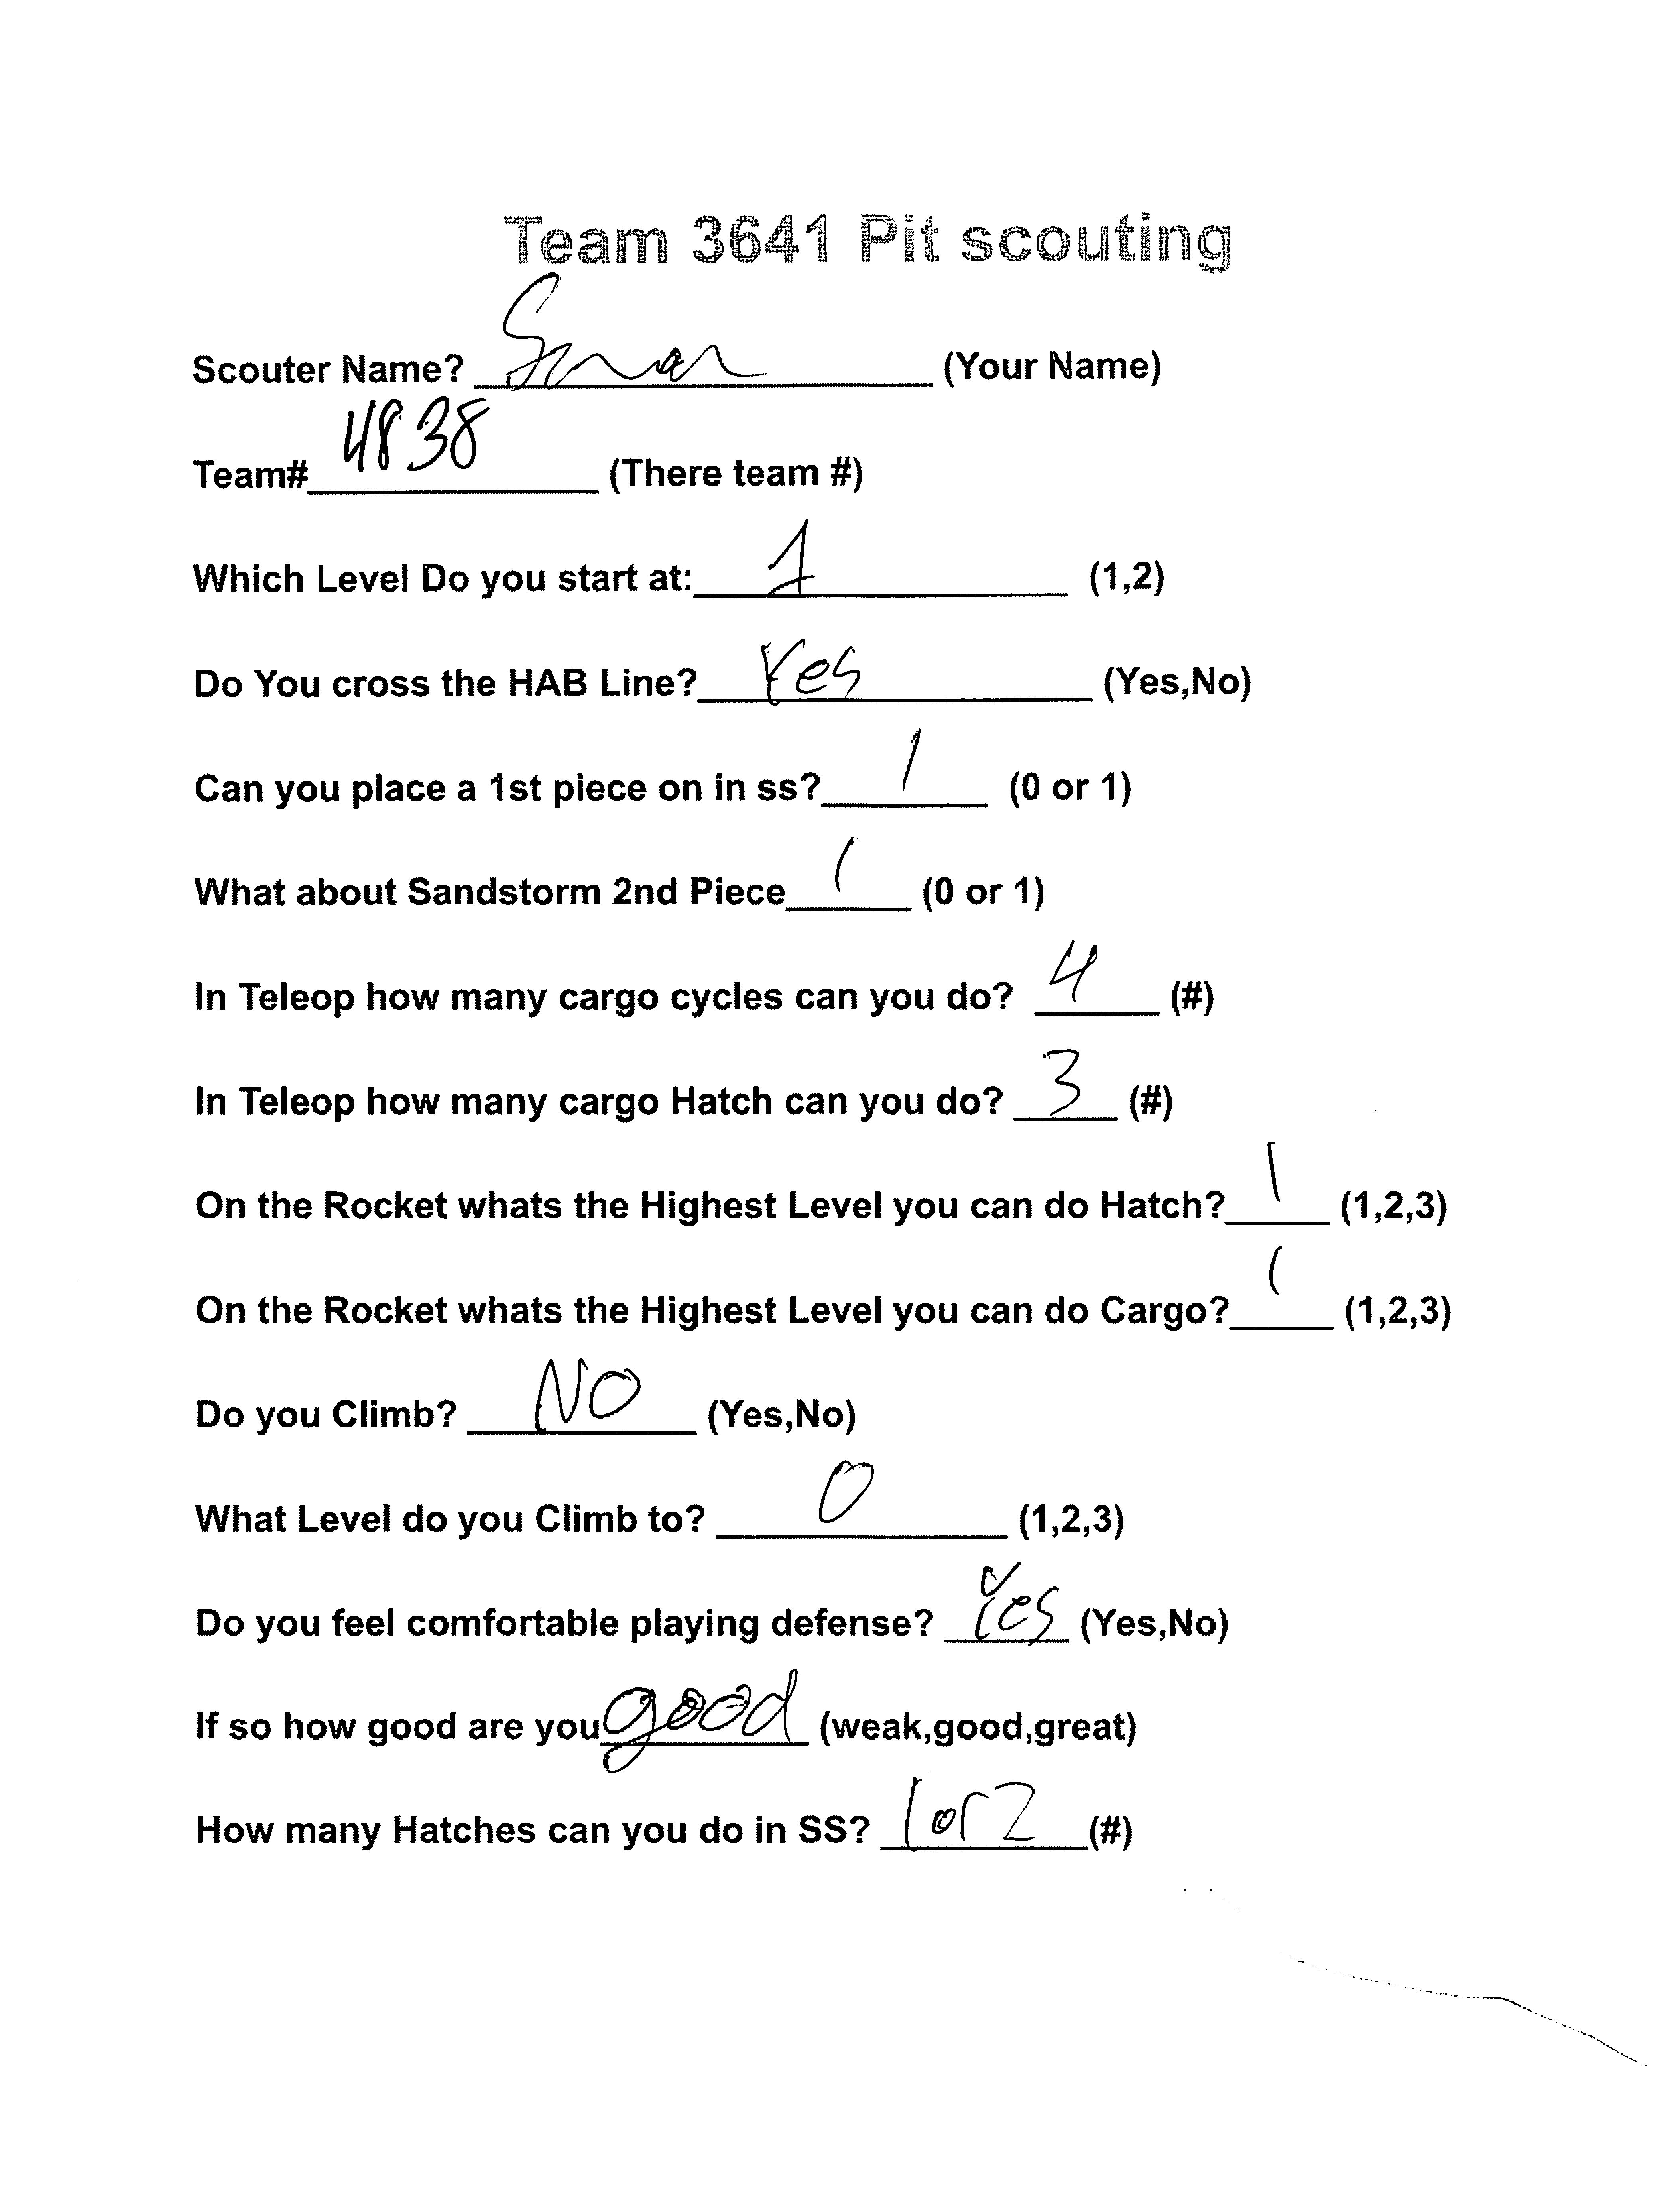 Team 3641 Pit scouting
Scouter Name? (Your Name)
Team# 4838 (There team #)
Which Level Do you start at: 1 (1,2)
Do You cross the HAB Line? Yes (Yes,No)
Can you place a 1st piece on in ss? 1 (0 or 1)
What about Sandstorm 2nd Piece 1 (0 or 1)
In Teleop how many cargo cycles can you do? 4 (#)
In Teleop how many cargo Hatch can you do? 3 (#)
On the Rocket whats the Highest Level you can do Hatch? 1 (1,2,3)
On the Rocket whats the Highest Level you can do Cargo? 1 (1,2,3)
Do you Climb? NO (Yes,No)
What Level do you Climb to? 0 (1,2,3)
Do you feel comfortable playing defense? Yes (Yes,No)
If so how good are you good (weak,good,great)
How many Hatches can you do in SS? 1 or 2 (#)